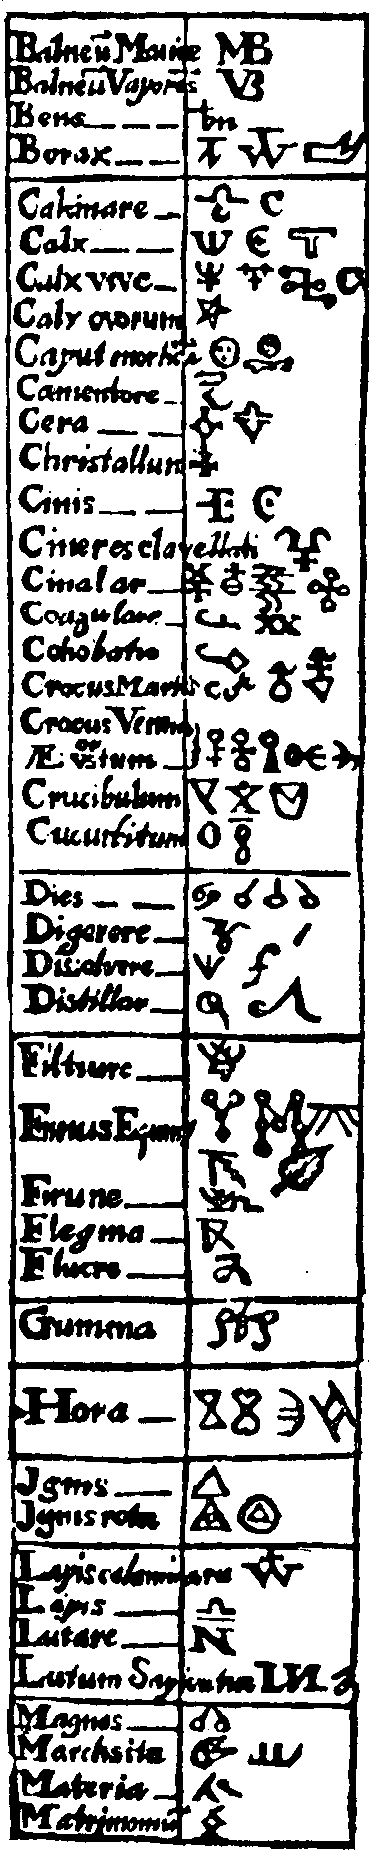 Balneũ Mariae MB
Balneũ Vapores VB
Bene
Borax
Calcinare
Calx
Calx vive
Calx ovorum
Caput mortuū
Cementare
Cera
Christallum
Cinis
Cineres clavellati
Cinabar
Coagulare
Cohobatio
Crocus Martis
Crocus Veneris
or
Æs ustum
Crucibulum
Cucurbitum
Dies
Digerere
Dissolvere
Distillar
Filtrare
Fimus Equinus
Flegma
Gumma
Hora
Ignis
Ignis rotae
Lapis calaminaris
Lapis
Lutare
Lutum Sapientiae
Magnes
Marchsita
Materia
Matrimoniū